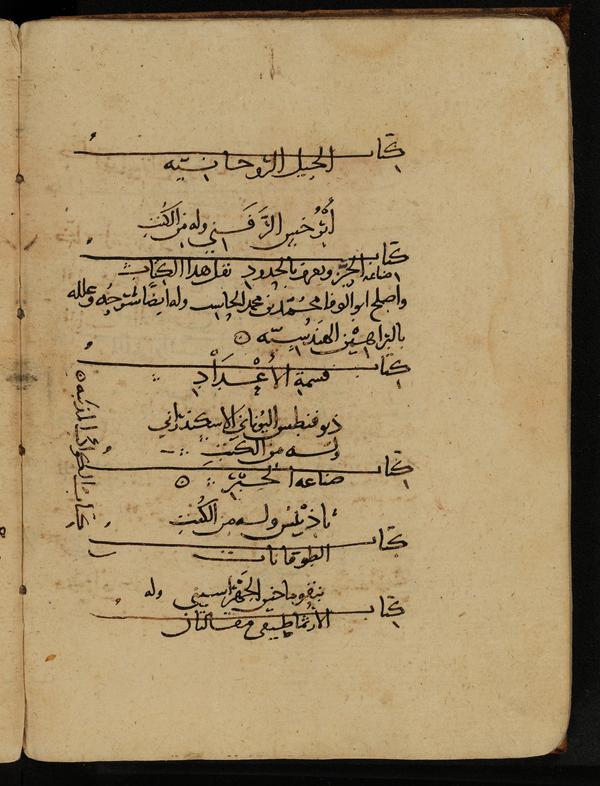 كتاب
الحيل الروحانيه
أبرخس الزفني وله من الكتب
كتاب
صناعة الجبر ويعرف بالحدود نقل هذا الكتاب
وأصلح ابو الوفا محمد بن محمد الحاسب وله ايضا شرحه وعلله
بالبراهين الهندسيه
كتاب
قسمة الأعداد
ذيوفنطس اليوناني الاسكندراني
وله من الكتب
كتاب
صناعه الجبر
ثاذينس وله من الكتب
كتاب
الطوفانات
نيقوماخس الجهراسيني وله
كتاب
الارثماطيقي مقالتان
كتاب الكواكب المذنبه